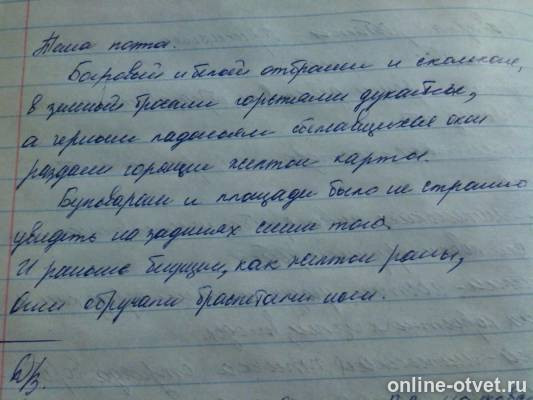 Тема поэта.
Багровый и белый отброшен и скомкан,
в зеленый бросали горстями дукаты,
а черным ладоням сбежавшихся окон
раздали горящие желтые карты.
Бульварам и площади было не странно
увидеть на зданиях синие тоги.
И раньше бегущим, как желтые раны,
огни обручали браслетами ноги.
Д/з.
online-otvet.ru